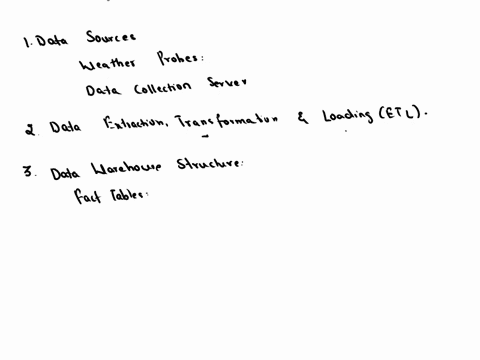 1. Data Sources
Weather Probes:
Data Collection Server
2. Data Extraction, Transformation & Loading (ETL).
3. Data Warehouse Structure:
Fact Tables: